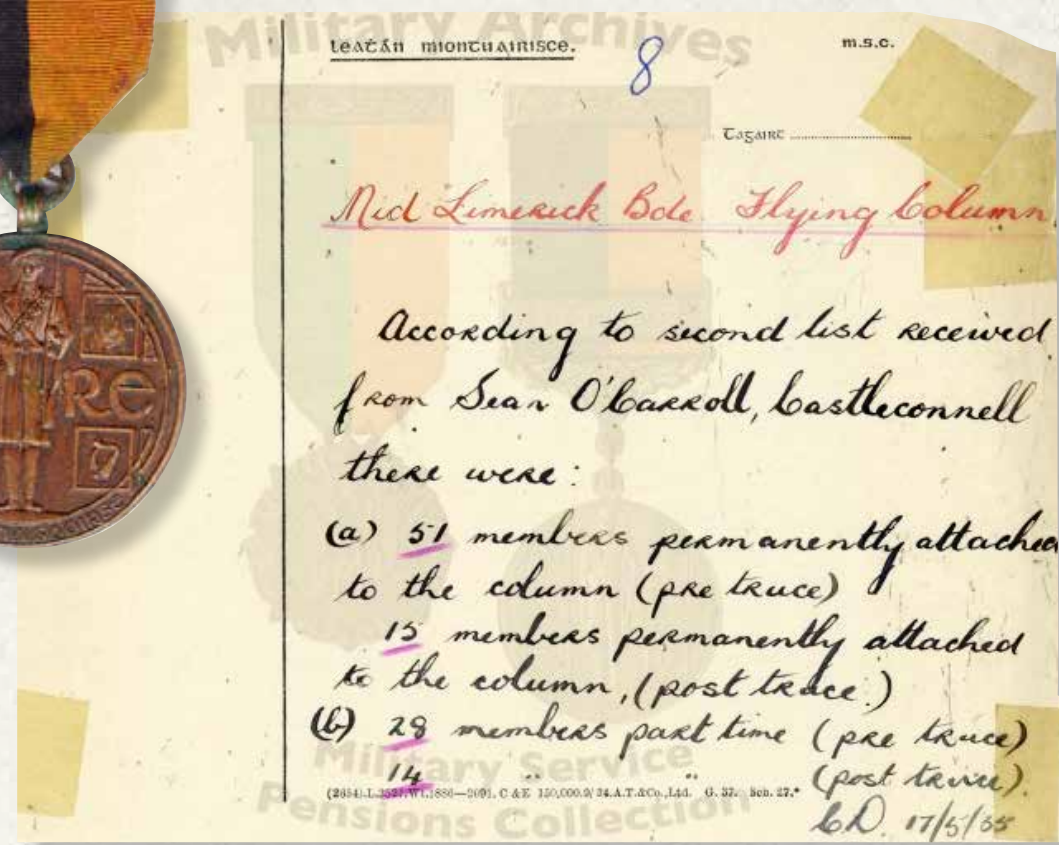 Military Archives
leatán mionтuairisce.
8
m.s.c.
Tagairt
Mid Limerick Bde. Flying Column
According to second list received
from Sean O'Carroll, Castleconnell
there were:
(a) 51 members permanently attached
to the column (pre truce)
15 members permanently attached
to the column, (post truce.)
(b) 28 members part time (pre truce)
14 " " (post truce).
C.D. 17/5/35
Military Service
Pensions Collection
RE